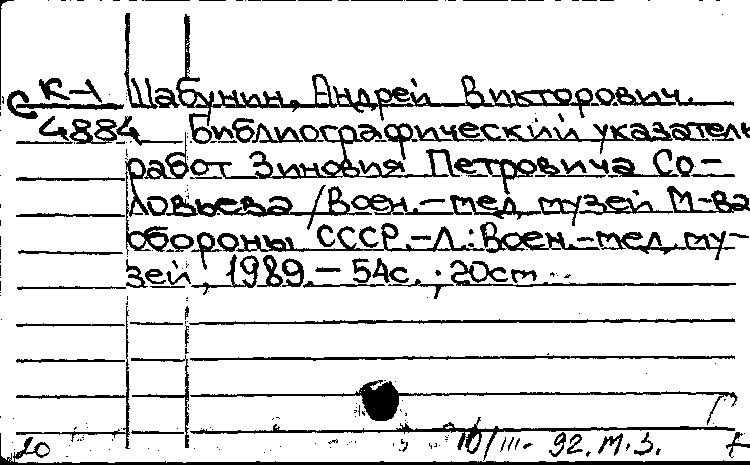 К-1 Шабунин, Андрей Викторович.
4884 Библиографический указатель
работ Зиновия Петровича Со-
ловьева /Воен.-мед. музей М-ва
обороны СССР.-Л.:Воен.-мед. му-
зей, 1989.- 54с. ; 20cm
20 10/III- 92. М.З.